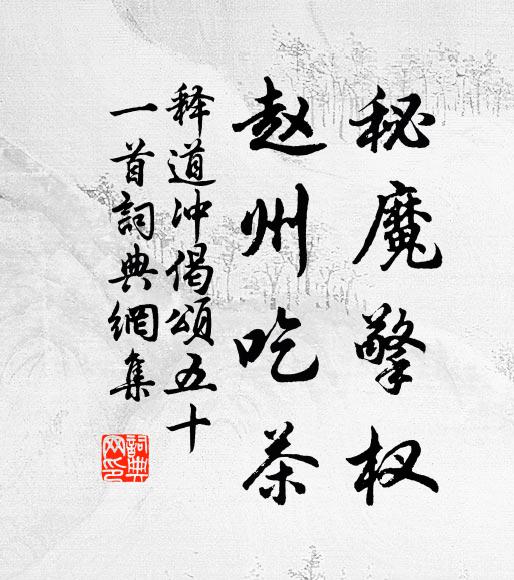 秘魔擎杈
赵州吃茶
释道冲偈颂五十
一首詞典網集
詞典网印